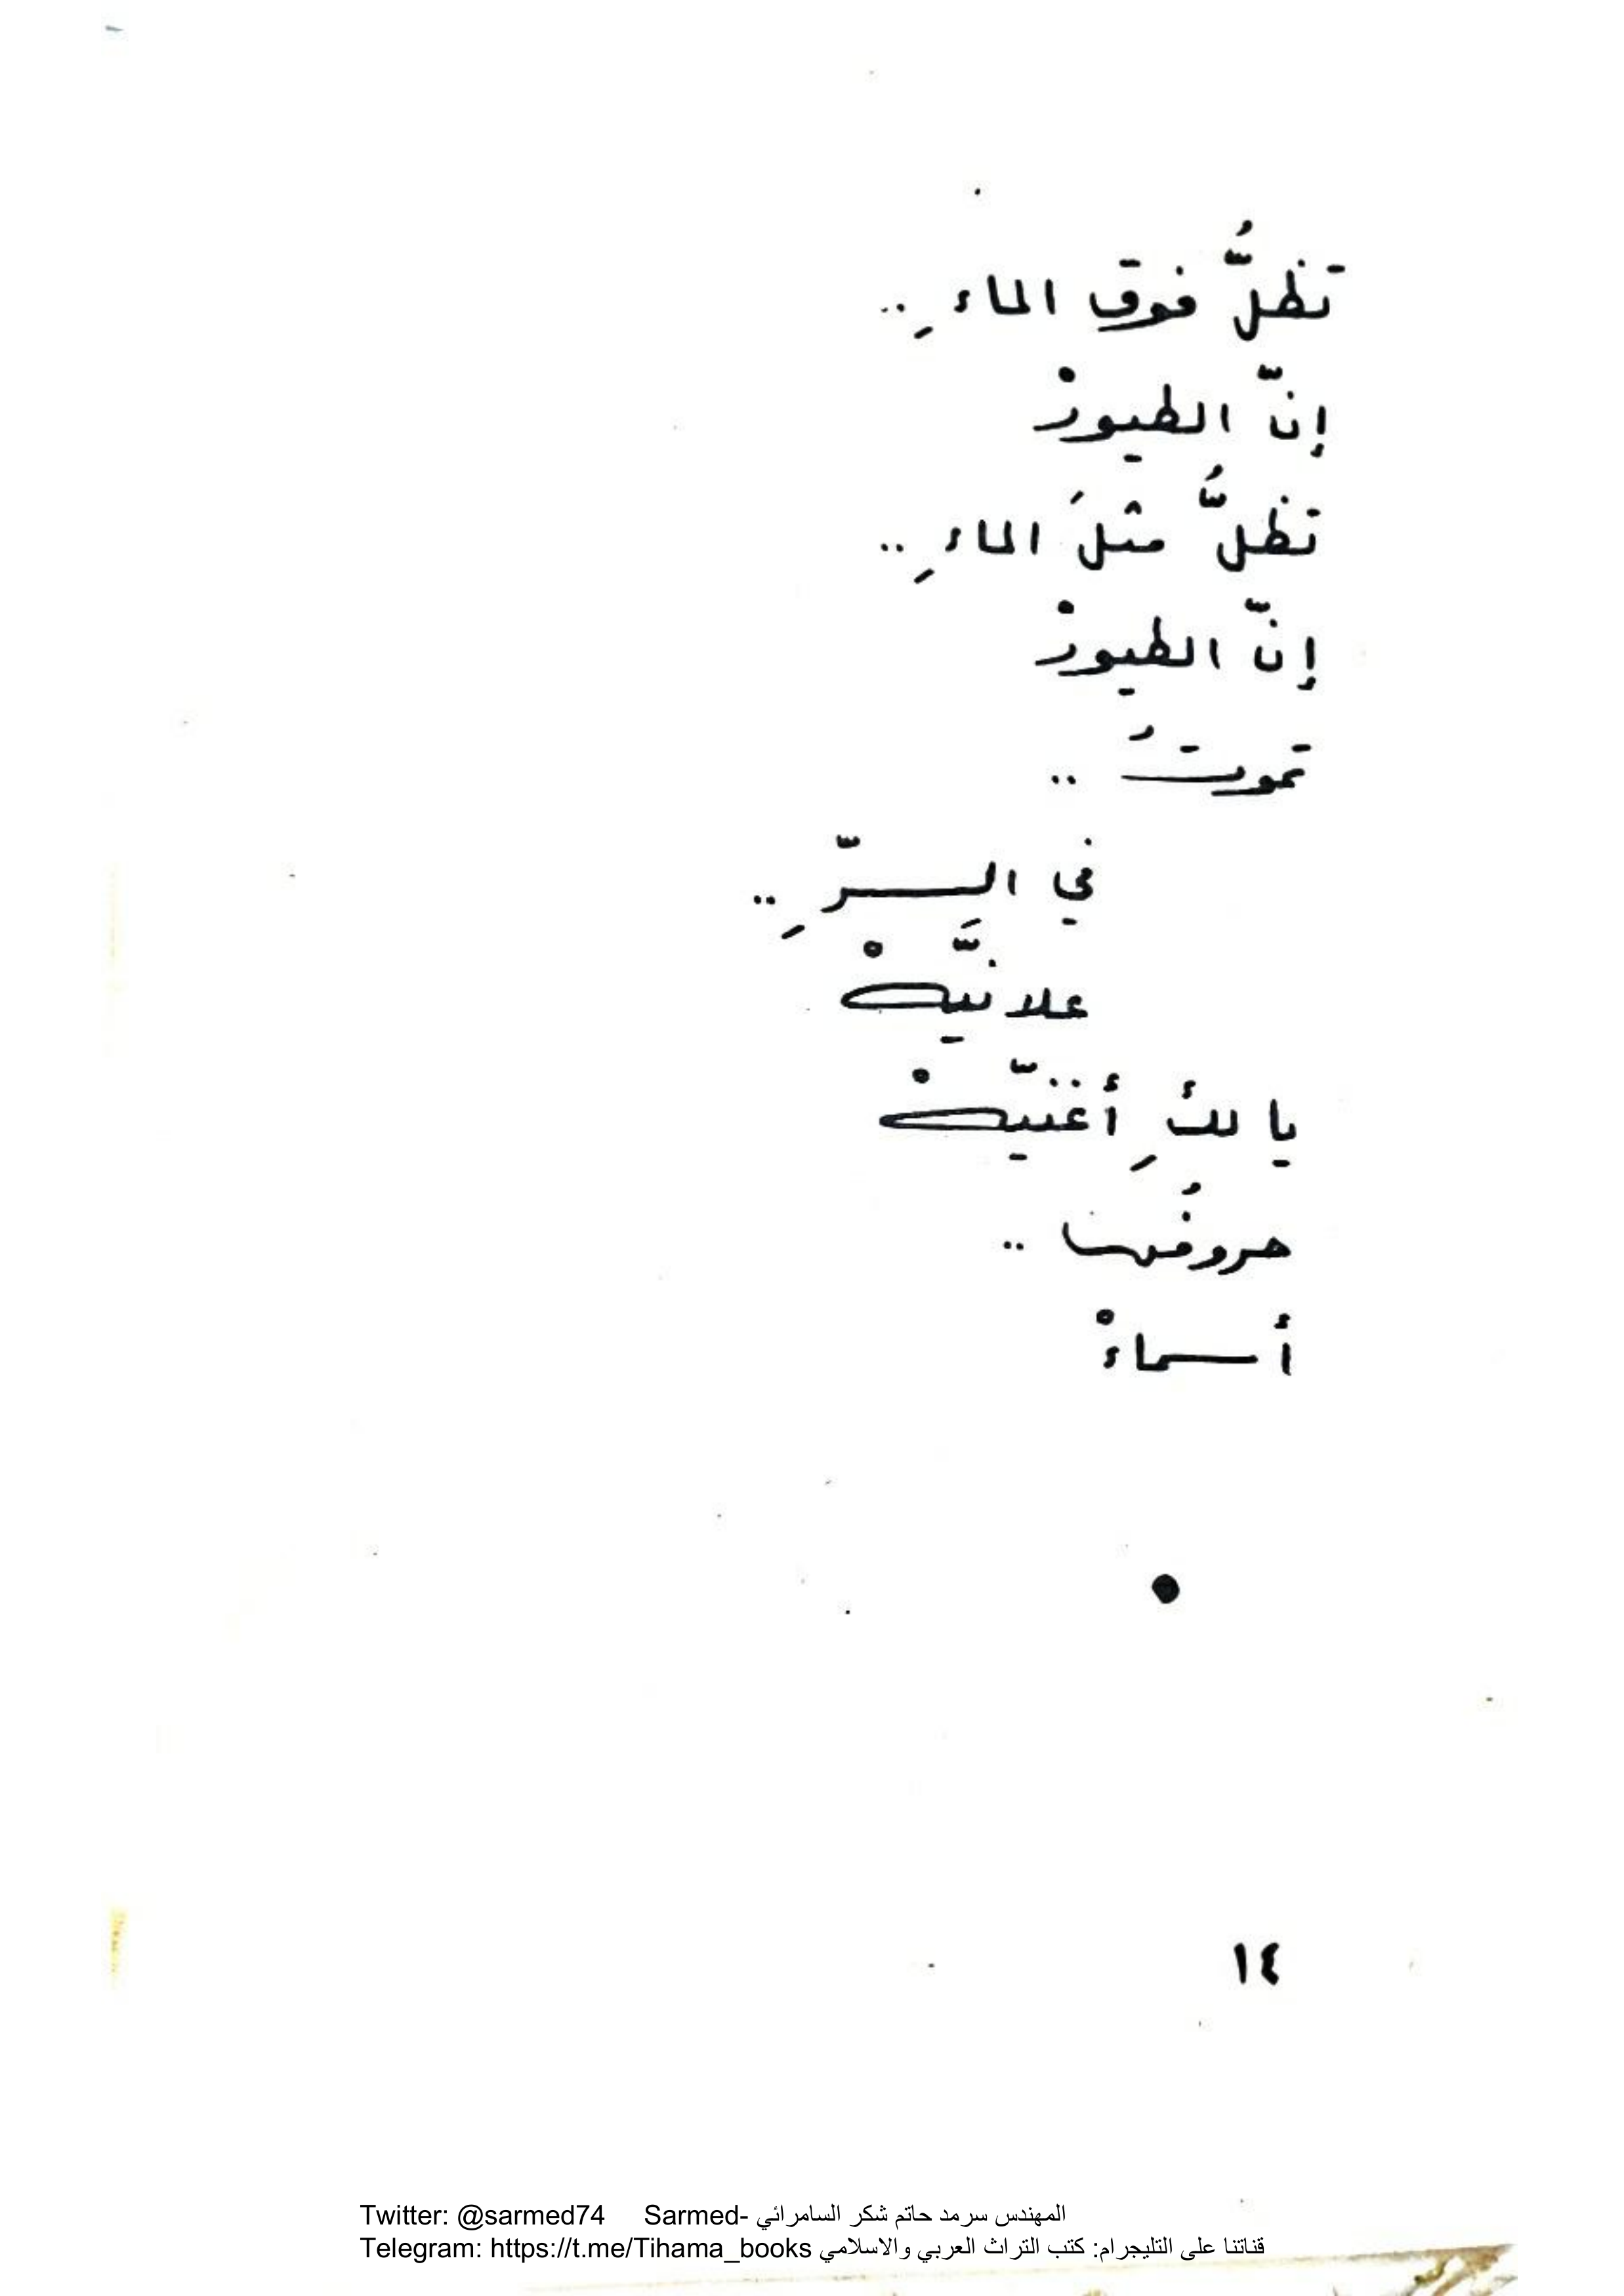 تظلُّ فوق الماءِ ..
إنّ الطيورْ
تظلُّ مثلَ الماءِ ..
إنّ الطيورْ
تموتُ ..
في السرِّ ..
علانيَّهْ
يا لكِ أغنيّهْ
حروفُها ..
أسماءْ
١٤
Twitter: @sarmed74 Sarmed- المهندس سرمد حاتم شكر السامرائي
Telegram: https://t.me/Tihama_books قناتنا على التليجرام: كتب التراث العربي والاسلامي